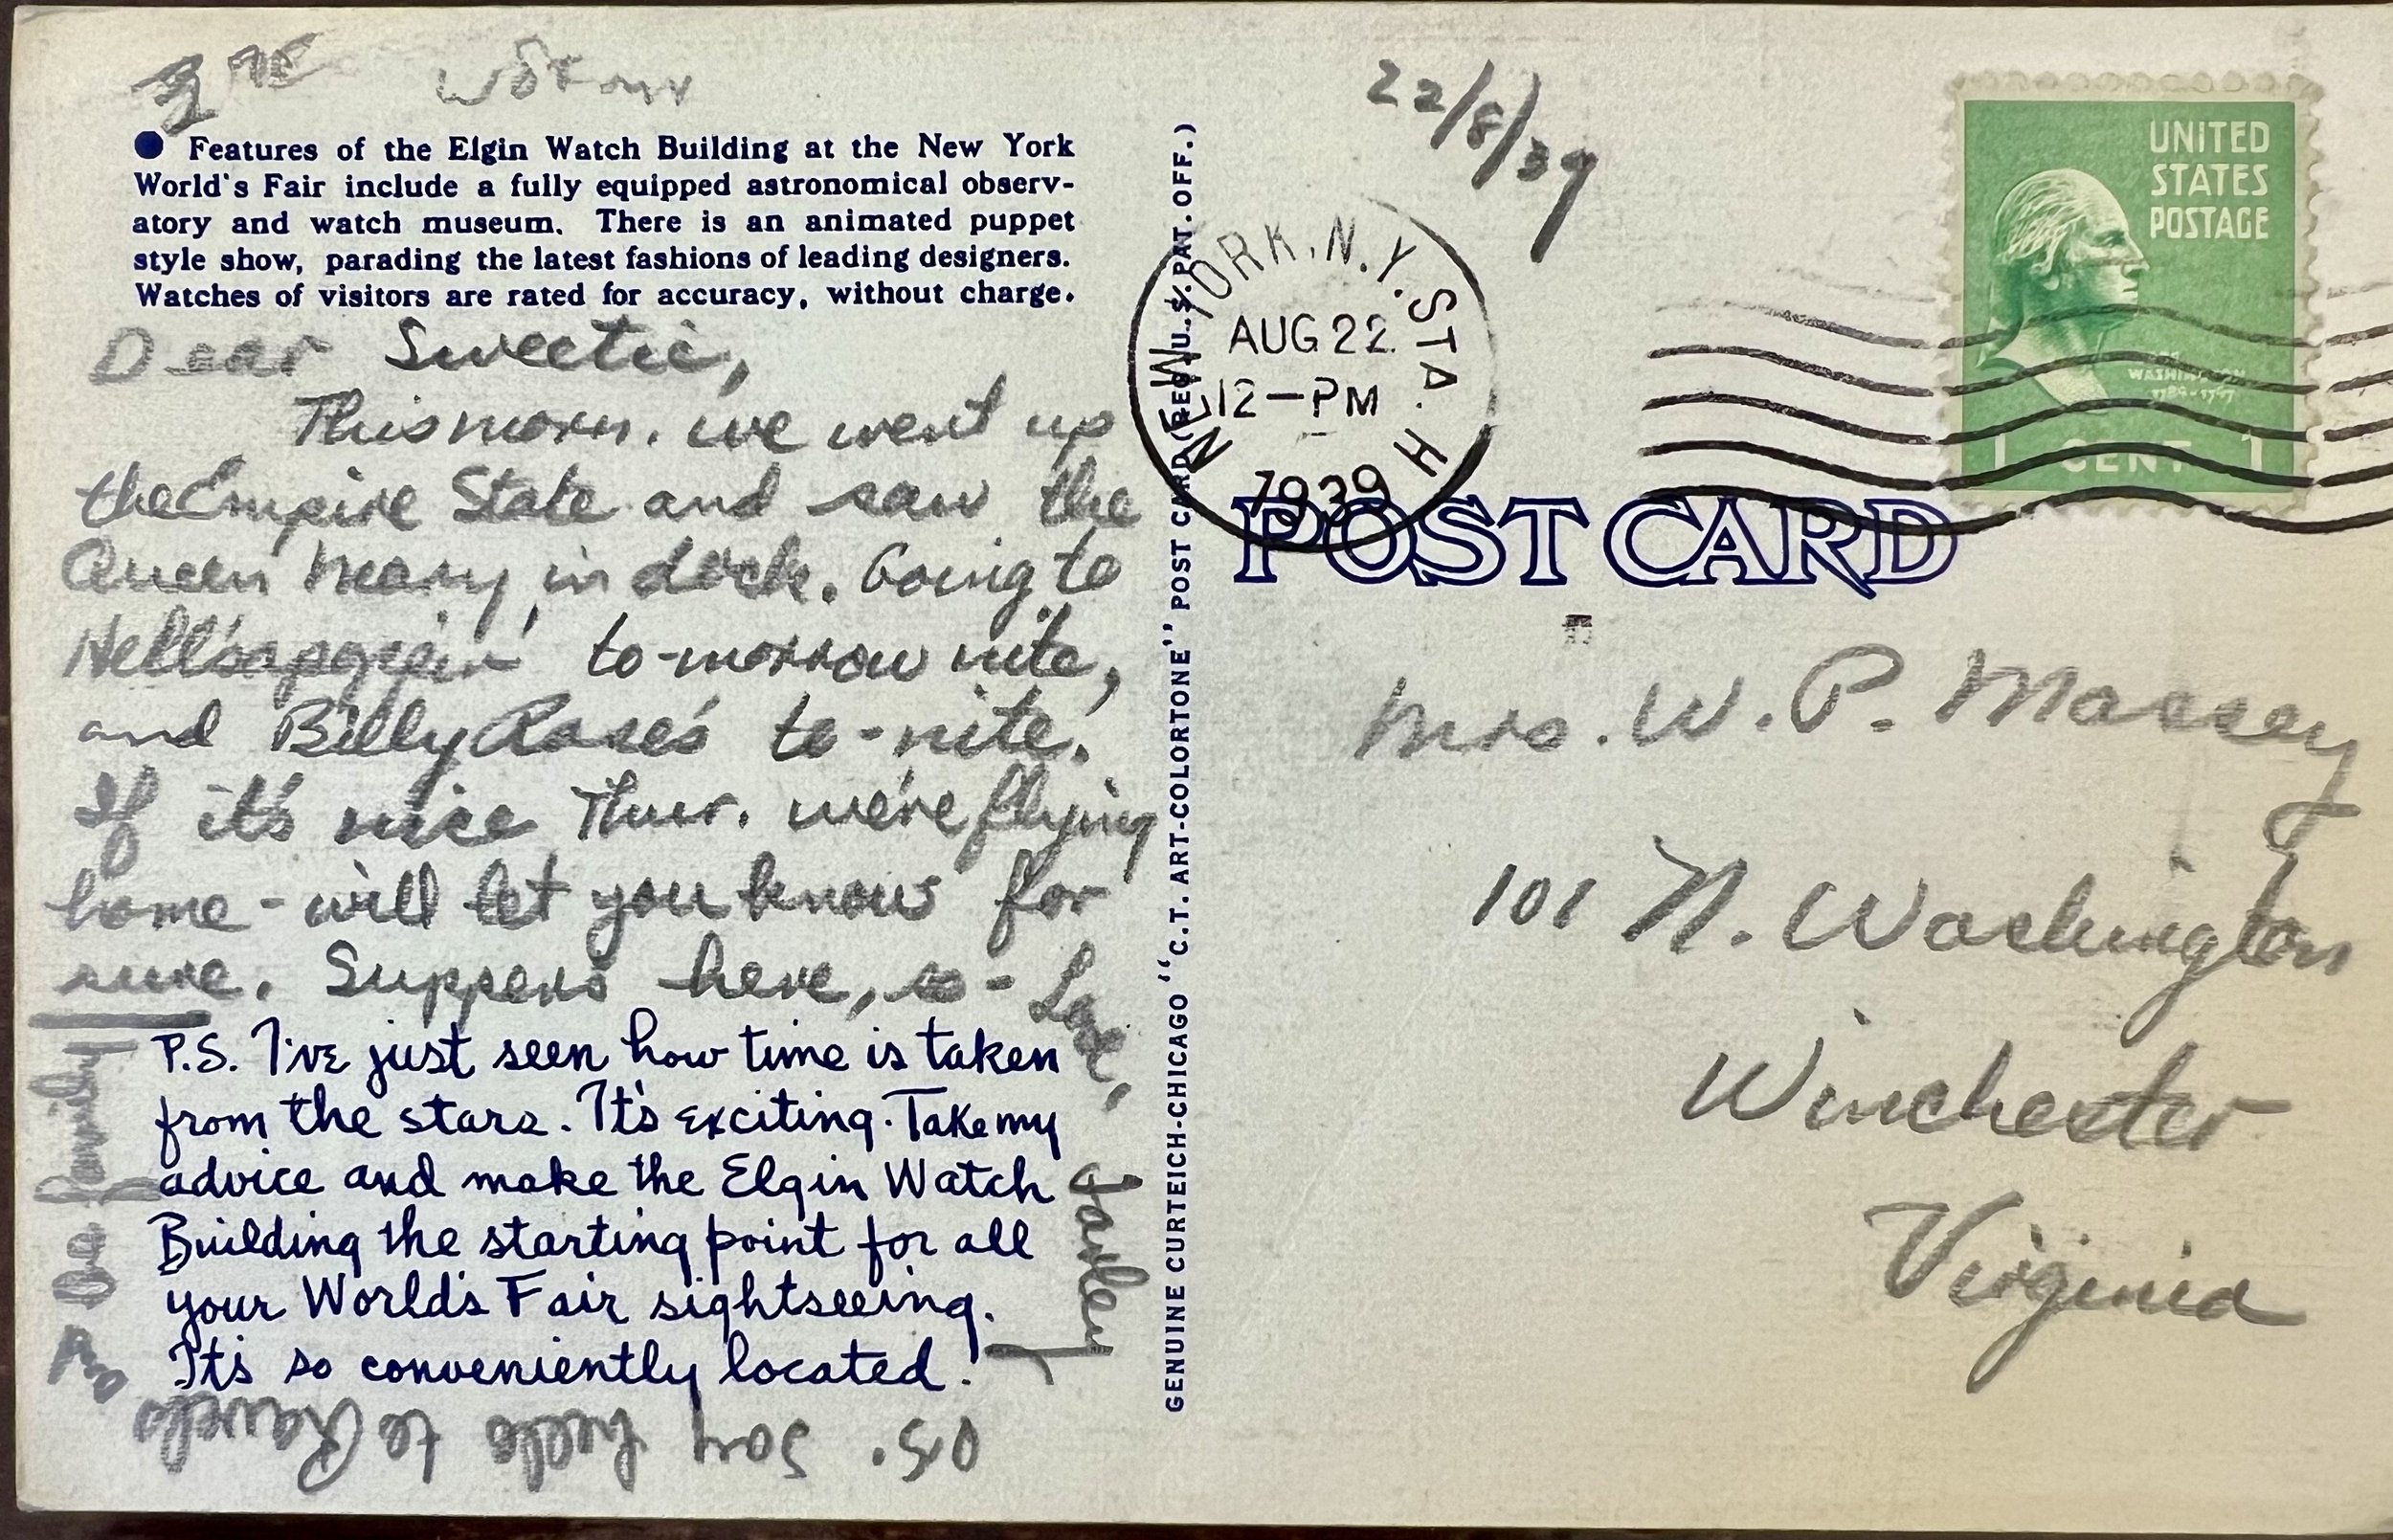 ● Features of the Elgin Watch Building at the New York
World's Fair include a fully equipped astronomical observ-
atory and watch museum. There is an animated puppet
style show, parading the latest fashions of leading designers.
Watches of visitors are rated for accuracy, without charge.
Dear Sweetie,
This morn. we went up
the Empire State and saw the
Queen Mary, in dock. Going to
Hellsapopin' to-morrow nite,
and Billy Rose's to-nite.
If it's nice Thur. we're flying
home - will let you know for
sure. Suppers here, so - Love,
P.S. I've just seen how time is taken
from the stars. It's exciting. Take my
advice and make the Elgin Watch
Building the starting point for all
your World's Fair sightseeing.
It's so conveniently located.
P.S. Say hello to
family
GENUINE CURTEICH-CHICAGO "C.T. ART-COLORTONE" POST CARD (REG. U.S. PAT. OFF.)
22/8/39
NEW YORK, N.Y. STA. H
AUG 22
12-PM
1939
UNITED
STATES
POSTAGE
WASHINGTON
1789-1797
1 CENT 1
POST CARD
Mrs. W. P. Massey
101 N. Washington
Winchester
Virginia